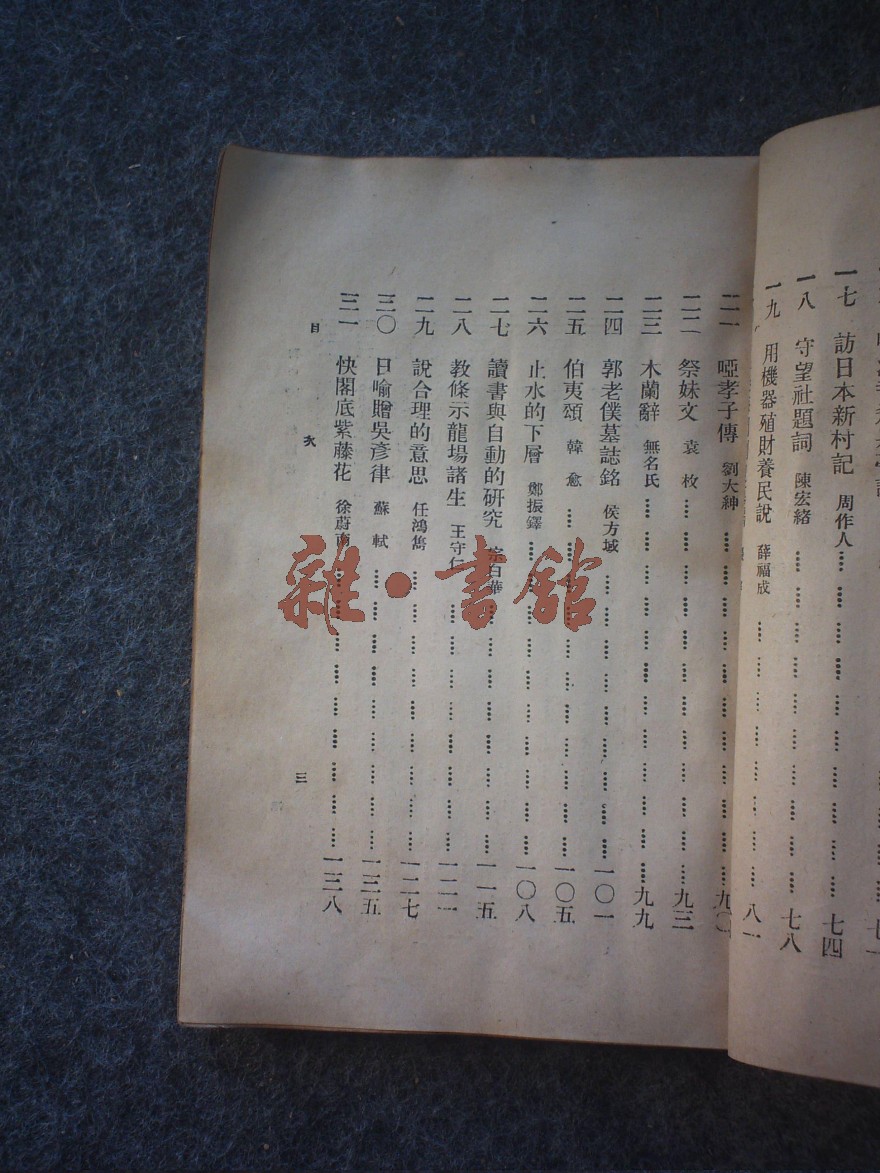 一七　訪日本新村記　周作人……七四
一八　守望社題詞　陳宏緒……七八
一九　用機器殖財養民說　薛福成……八一
二一　啞孝子傳　劉大紳……九〇
二二　祭妹文　袁枚……九三
二三　木蘭辭　無名氏……九九
二四　郭老僕墓誌銘　侯方域……一〇一
二五　伯夷頌　韓愈……一〇五
二六　止水的下層　鄭振鐸……一〇八
二七　讀書與自動的研究　宗白華……一一五
二八　教條示龍場諸生　王守仁……一二一
二九　說合理的意思　任鴻雋……一二七
三〇　日喻贈吳彥律　蘇軾……一三五
三一　快閣底紫藤花　徐蔚南……一三八
目次
三
雜·書館